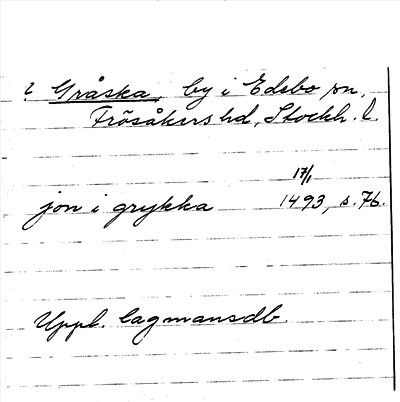 ? Gråska, by i Edsbo sn,
Frösåkers hd, Stockh. l.
17/1
jon i grykka 1493, s. 76.
Uppl. lagmansdb.